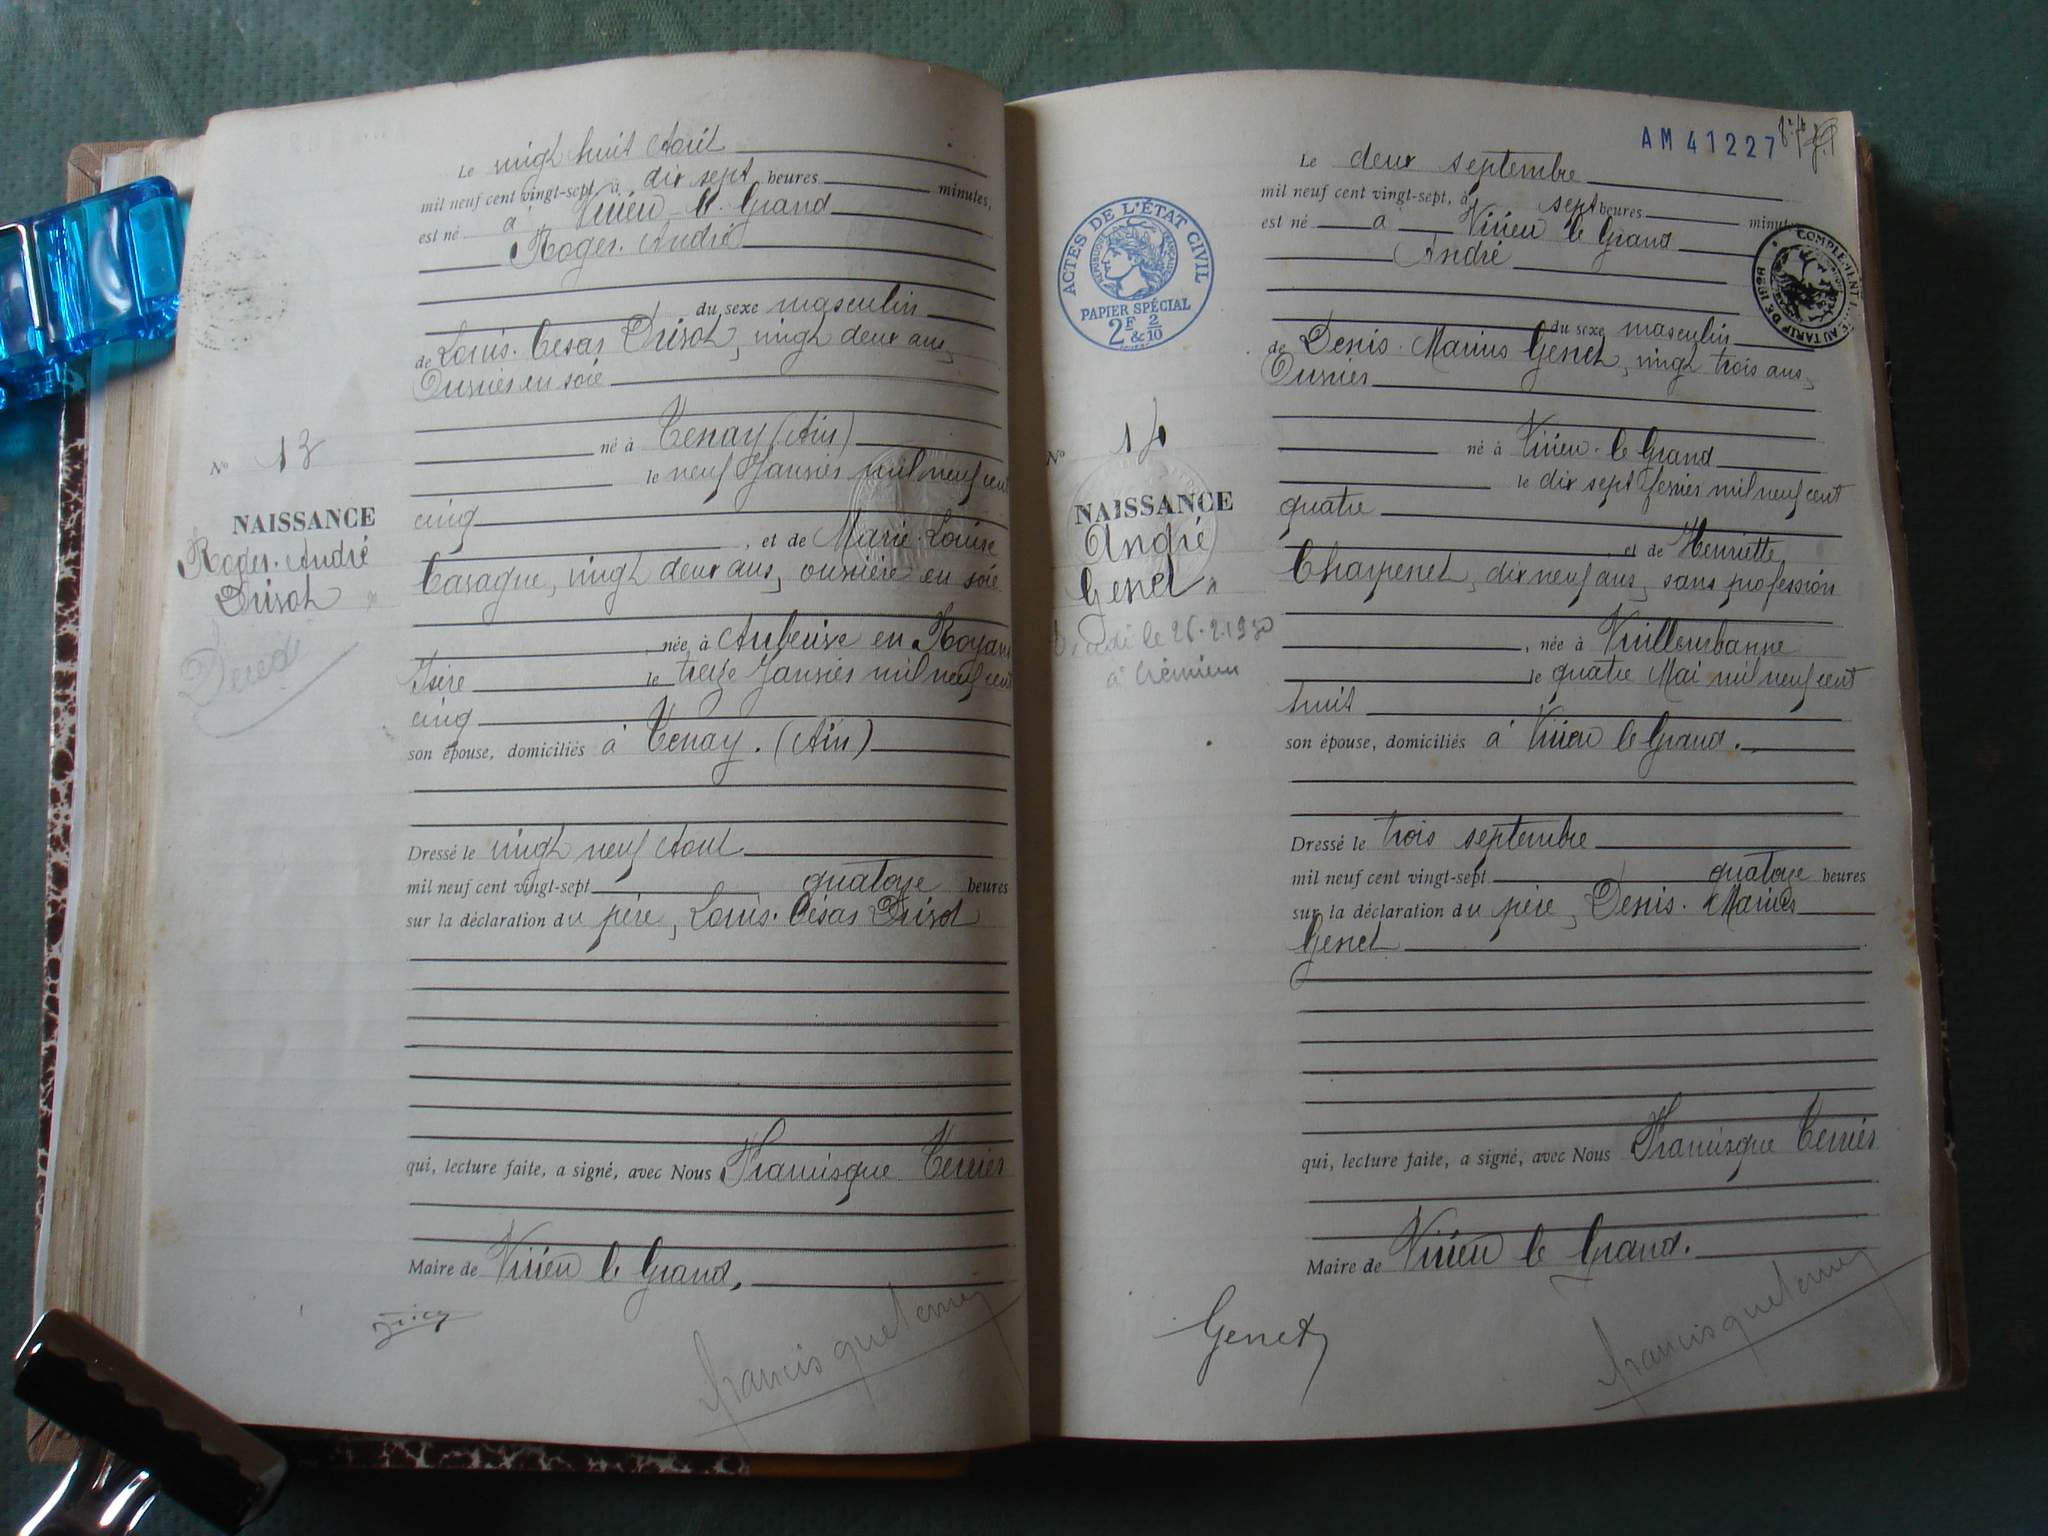 Le vingt huit Août
mil neuf cent vingt-sept à dix sept heures minutes,
est né à Virieu le Grand
Roger. André
du sexe masculin
de Louis. César Drisot, vingt deux ans,
Ouvrier en soie
né à Tenay (Ain)
le neuf Janvier mil neuf cent
cinq
, et de Marie-Louise
Casague, vingt deux ans, ouvrière en soie
, née à Auberive en Royans
Isère le treize Janvier mil neuf cent
cinq
son épouse, domiciliés à Tenay. (Ain)
Dressé le vingt neuf Août
mil neuf cent vingt-sept quatorze heures
sur la déclaration du père, Louis. César Drisot
qui, lecture faite, a signé, avec Nous Francisque Terrier
Maire de Virieu le Grand,
francisque terrier
No 13
NAISSANCE
Roger. André
Drisot
AM 41227
Le deux septembre
mil neuf cent vingt-sept, à sept heures minutes
est né à Virieu le Grand
André
du sexe masculin
de Denis. Marius Genet, vingt trois ans,
Ouvrier
né à Virieu. le Grand
le dix sept Février mil neuf cent
quatre
, et de Henriette
Charpenet, dix neuf ans, sans profession
, née à Villeurbanne
le quatre Mai mil neuf cent
huit
son épouse, domiciliés à Virieu le Grand.
Dressé le trois septembre
mil neuf cent vingt-sept quatorze heures
sur la déclaration du père, Denis. Marius
Genet
qui, lecture faite, a signé, avec Nous Francisque Terrier
Maire de Virieu le Grand.
Genet
francisque terrier
ACTES DE L'ÉTAT CIVIL
RÉPUBLIQUE FRANÇAISE
PAPIER SPÉCIAL
2F & 2/10
No 14
NAISSANCE
André
Genet
Décédé le 26.2.1930
à Crémieu